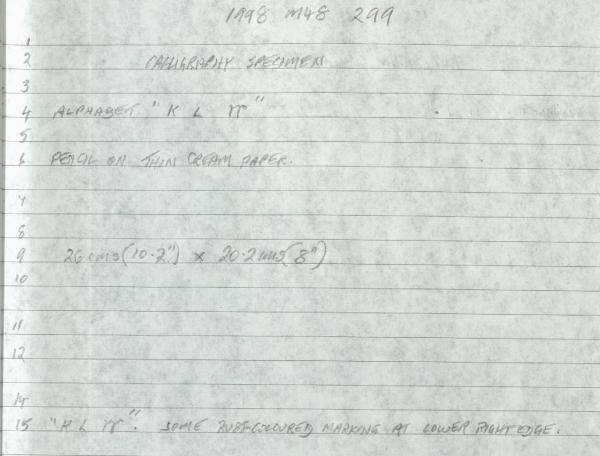 1998 M48 299
1
2 CALLIGRAPHY SPECIMEN
3
4 ALPHABET "K L M"
5
6 PENCIL ON THIN CREAM PAPER.
7
8
9 26 cms (10.2") x 20.2 cms (8")
10
11
12
14
15 "K L M". SOME RUST-COLOURED MARKING AT LOWER RIGHT EDGE.